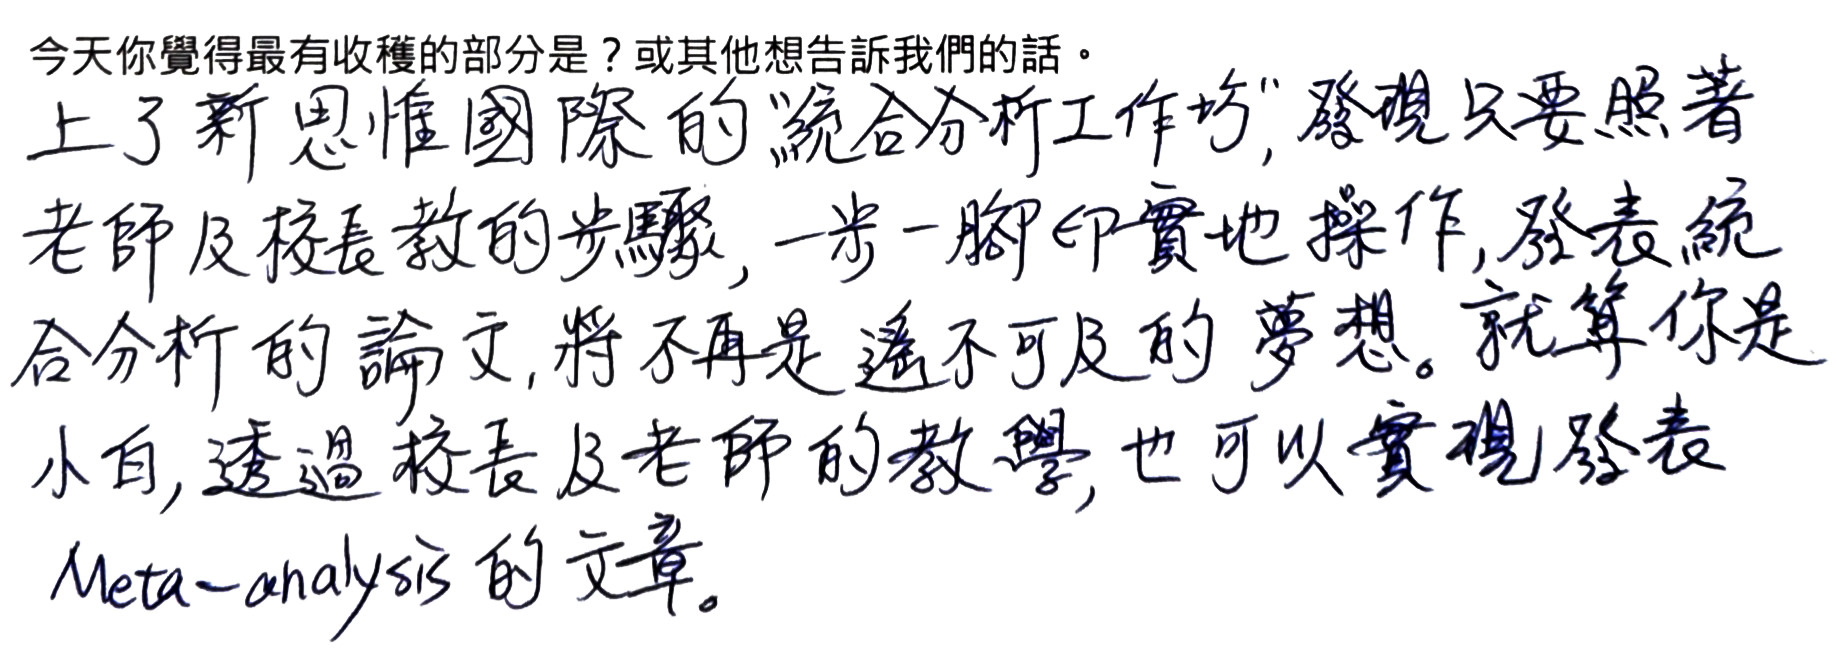 今天你覺得最有收穫的部分是？或其他想告訴我們的話。
上了新思惟國際的"統合分析工作坊",發現只要照著
老師及校長教的步驟,一步一腳印實地操作,發表統
合分析的論文,將不再是遙不可及的夢想。就算你是
小白,透過校長及老師的教學,也可以實現發表
Meta-analysis的文章。